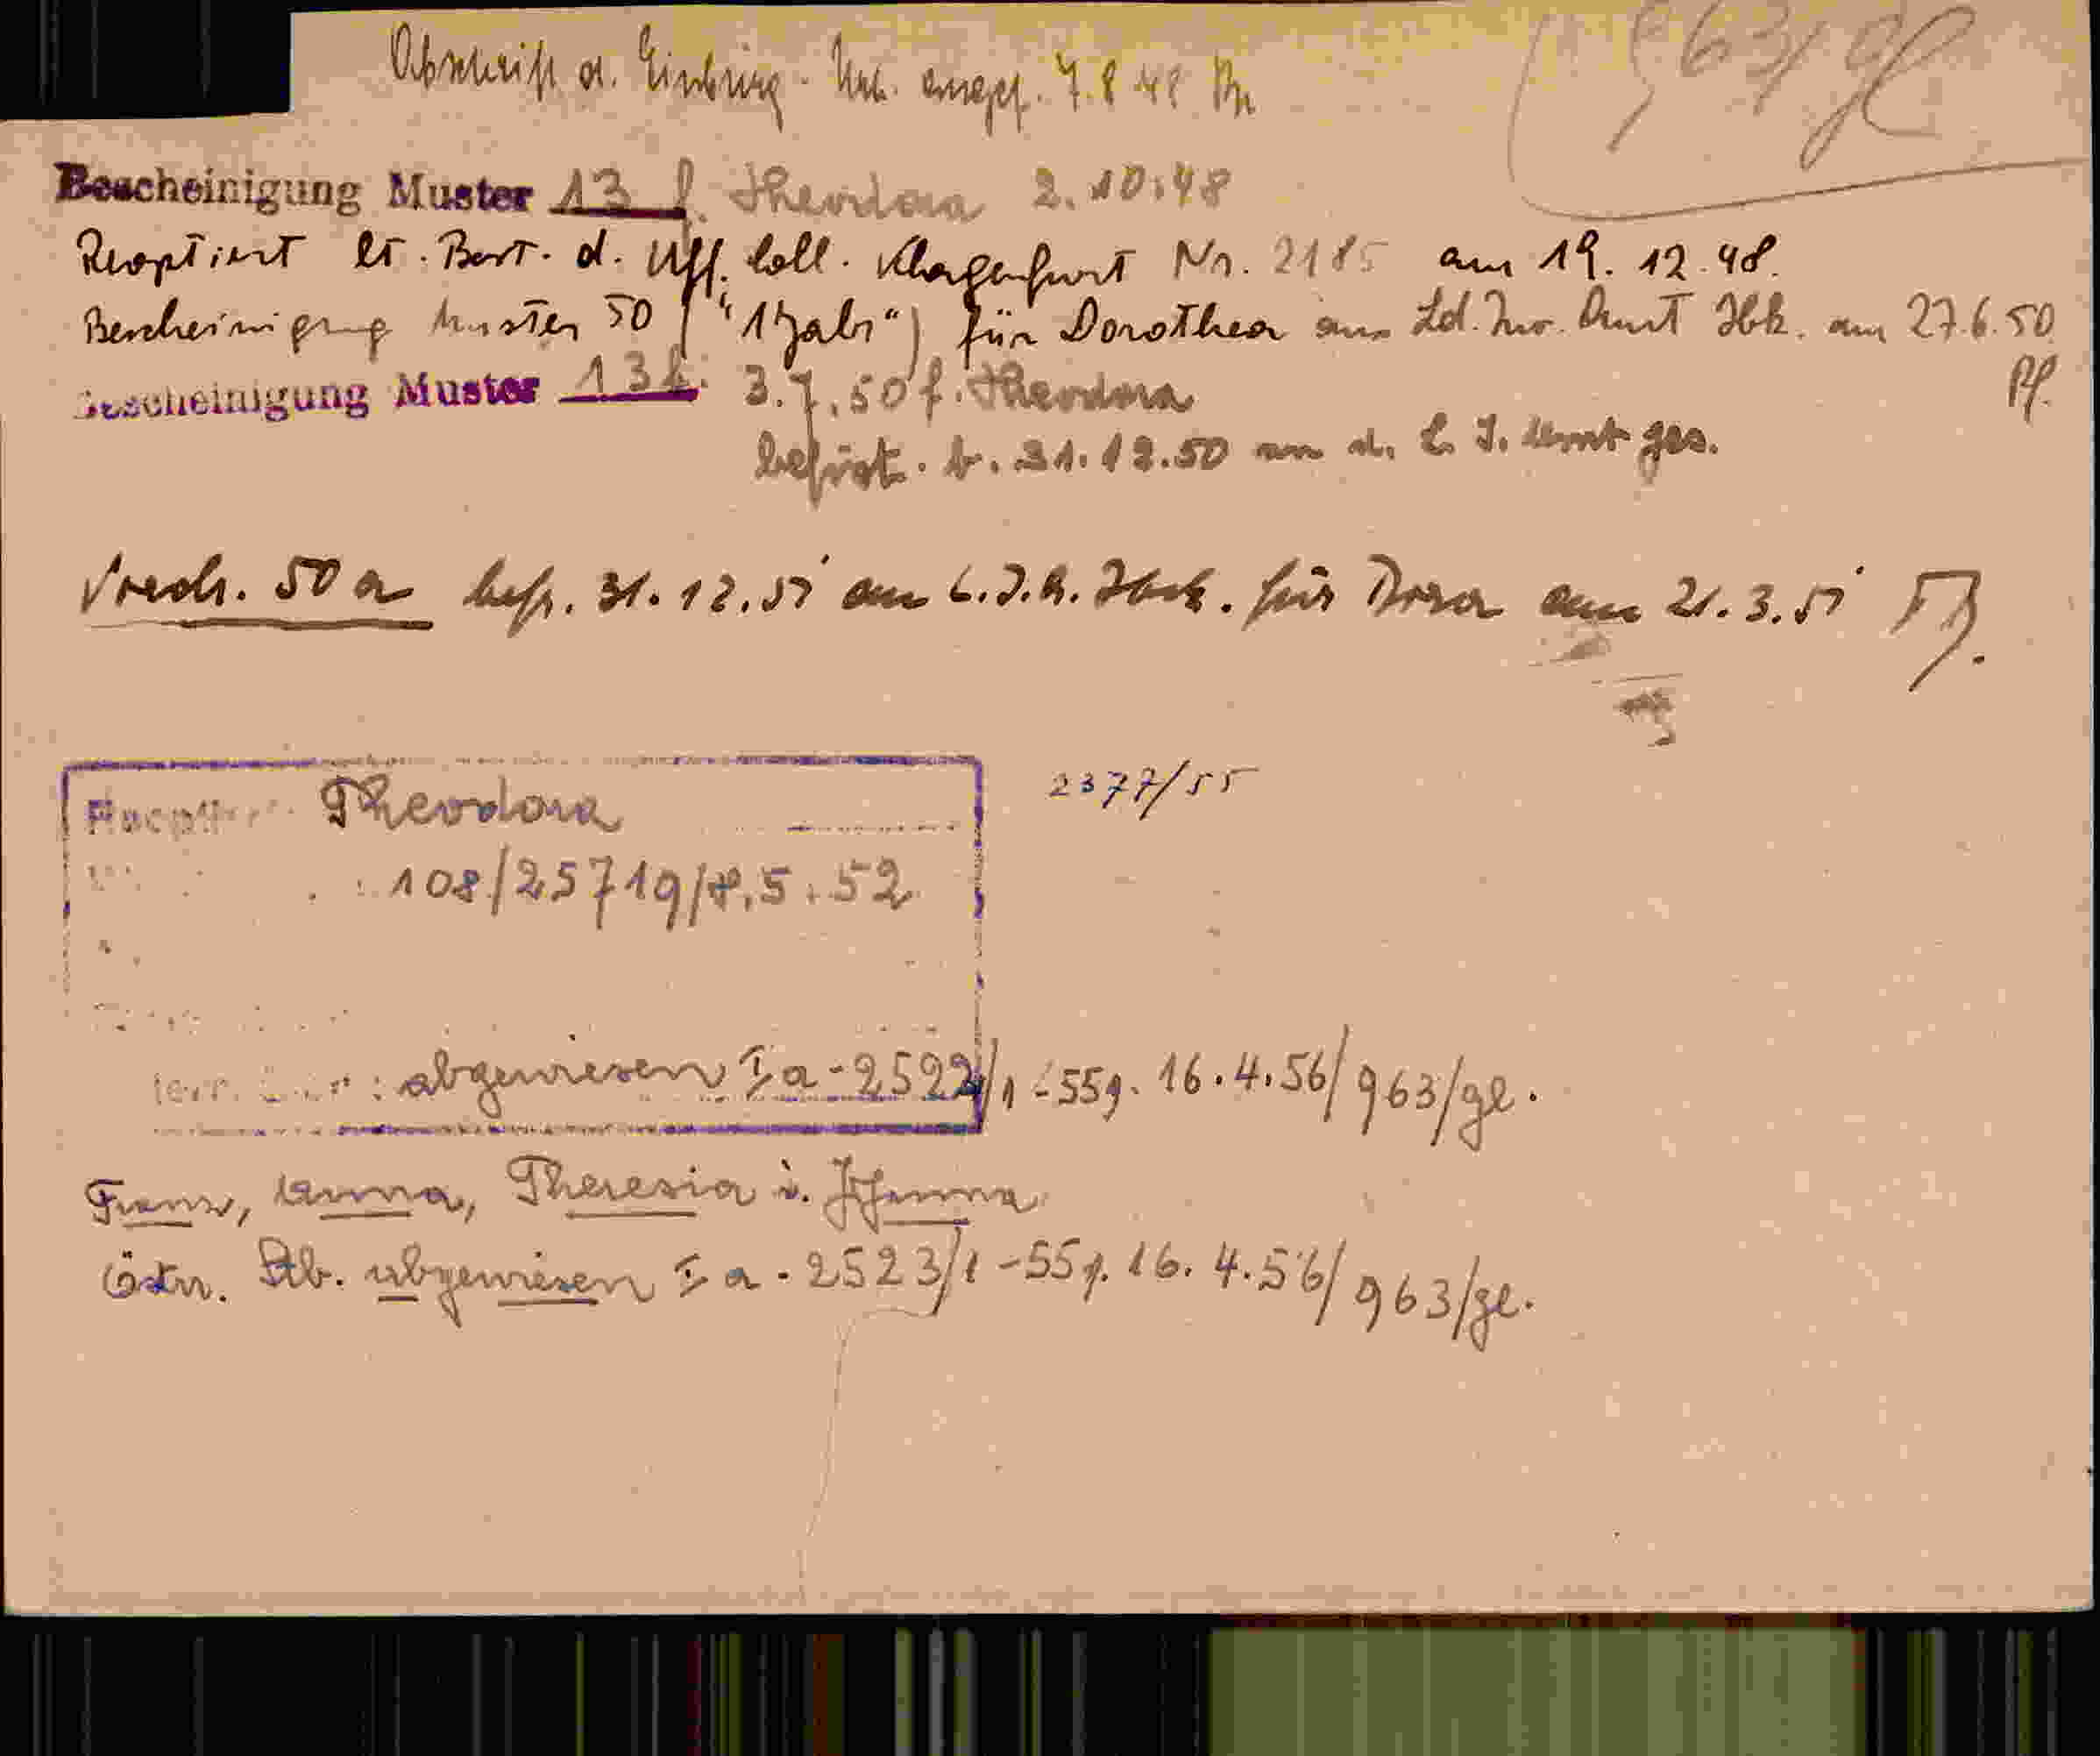 963/gl
Abschrift d. Einbürg. Urk. ausgef. 7.8.48
Bescheinigung Muster 13 f. Theodora 2.10.48
Reoptiert lt. Best. d. Uff. Coll. Klagenfurt Nr. 2185 am 19.12.48.
Bescheinigung Muster 50 ("1 Jahr") für Dorothea aus Ld. Inv. Amt Ibk. am 27.6.50
Pf.
Bescheinigung Muster 13 f. 3.7.50 f. Theodora
befrist. b. 31.12.50 an d. L. I. Amt ges.
Vordr. 50a befr. 31.12.51 am L.I.A. Ibk. für Dora am 21.3.51
Reoptiert Theodora
2377/55
108/25719/8.5.52
abgewiesen Ia-2522/1-55 g. 16.4.56/963/gl.
Franz, Anna, Theresia u. Johanna
östr. Stb. abgewiesen Ia-2523/1-55 g. 16.4.56/963/gl.